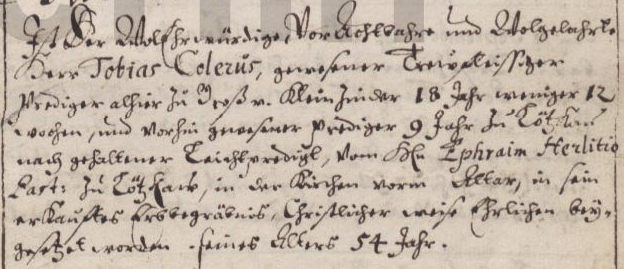 Ist Der WolEhrwürdige, VorAchtbahre und Wolgelahrte
Herr Tobias Colerus, gewesener Trewfleissiger
Prediger alhier zu Groß v. Klein 18 Jahr weniger 12
wochen, und vorhin gewesener Prediger 9 Jahr zu
nach gehaltener Leichpredigt, vom Hn Ephraim Herlitio
Past: zu in der Kirchen vorm Altar, in sein
erkaufftes Erbbegräbnis, Christlicher weise Ehrlichen bey-
gesetzet worden. seines Alters 54 Jahr.